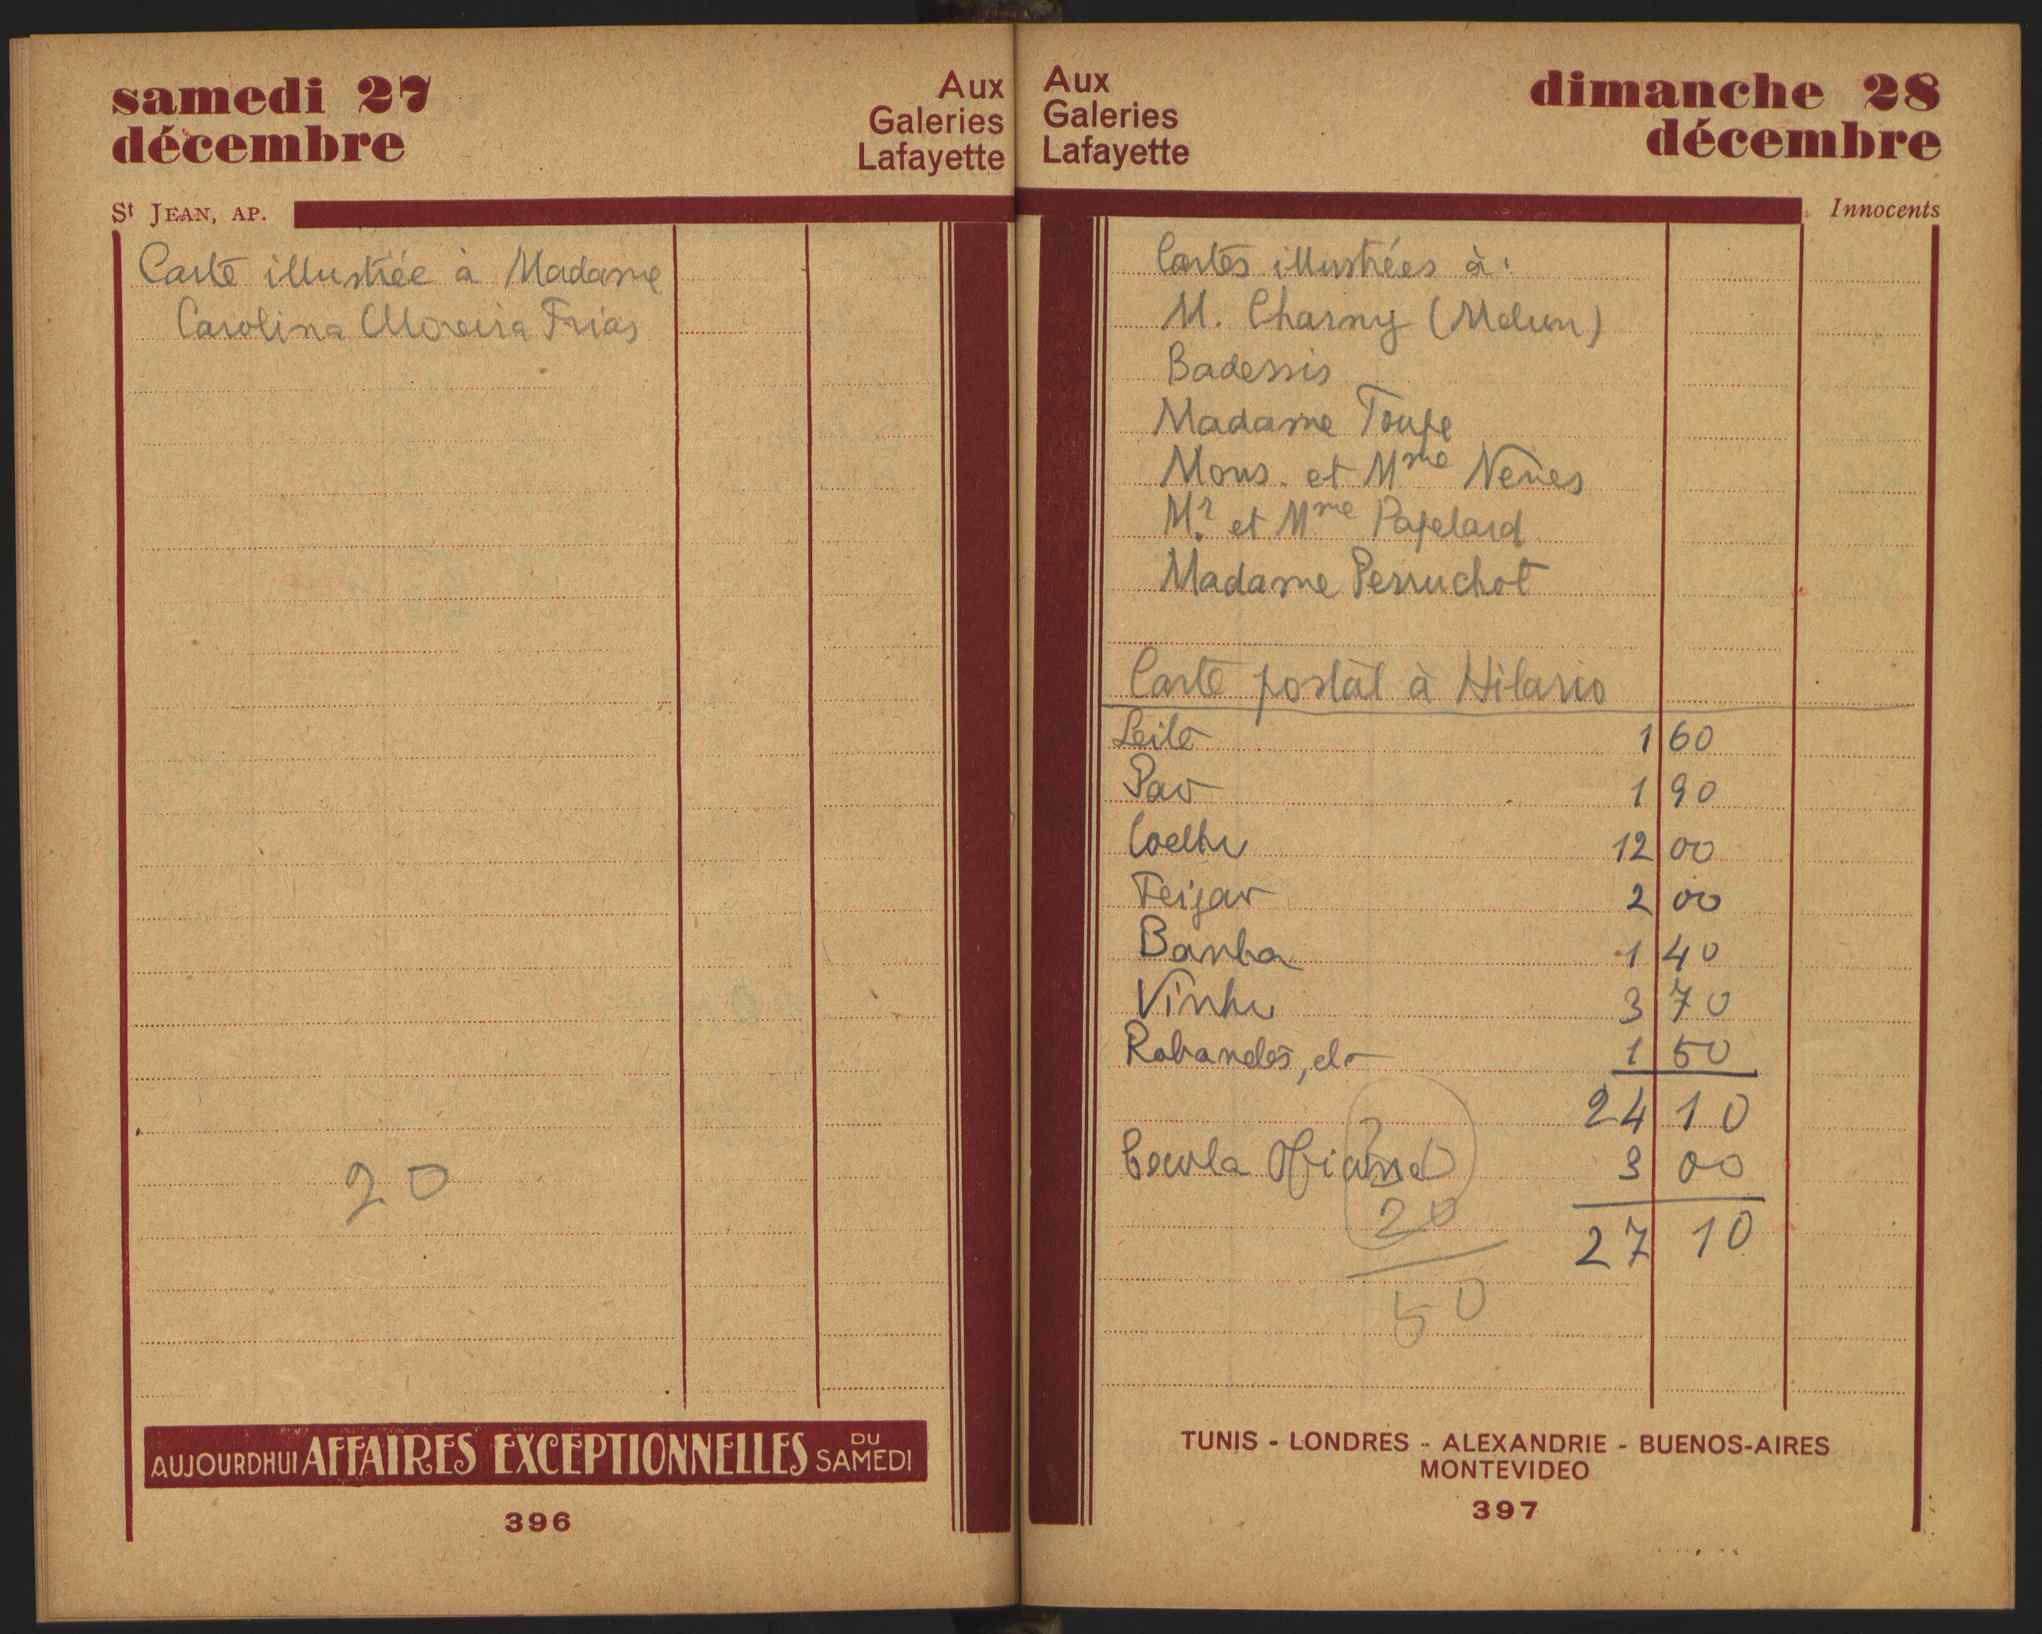 samedi 27
décembre
Aux
Galeries
Lafayette
St JEAN, AP.
Carte illustrée à Madame
Carolina Moreira Frias
20
AUJOURDHUI AFFAIRES EXCEPTIONNELLES DU SAMEDI
396
Aux
Galeries
Lafayette
dimanche 28
décembre
Innocents
Cartes illustrées à:
M. Charny (Melun)
Badessis
Madame Toupe
Mons. et Mme Nenes
Mr. et Mme Papelard
Madame Perruchot
Carte postal à Hilario
Leite 1 60
Pao 1 90
Coelho 12 00
Feijao 2 00
Banha 1 40
Vinho 3 70
Rabanetes, etc 1 50
24 10
3 00
20
27 10
50
TUNIS - LONDRES - ALEXANDRIE - BUENOS-AIRES
MONTEVIDEO
397